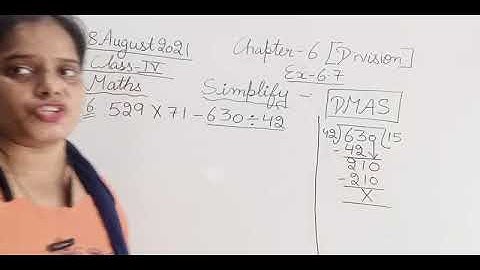 8 August 2021
Class-IV
Maths
Chapter-6 [Division]
Ex-6.7
Simplify -
DMAS
6 529 × 71 - 630 ÷ 42
42)630(15
- 42
210
- 210
X